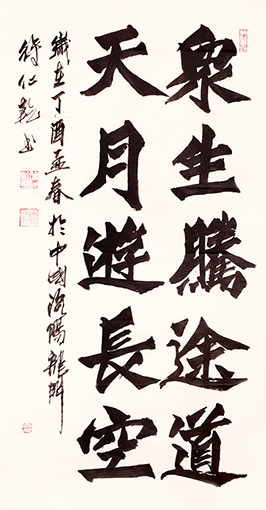 衆生騰途道
天月遊長空
歲在丁酉孟春於中國洛陽龍門
徐仁乾書